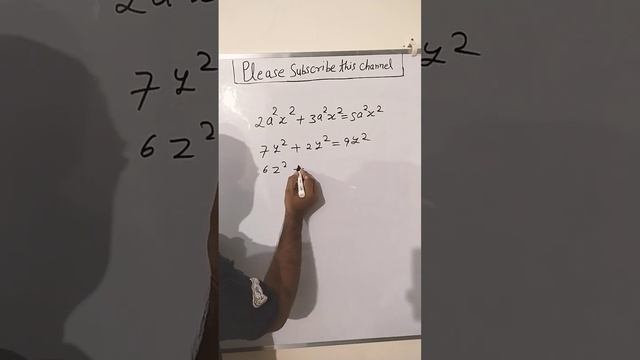 Please Subscribe this channel
2a²x² + 3a²x² = 5a²x²
7y² + 2y² = 9y²
6z² +